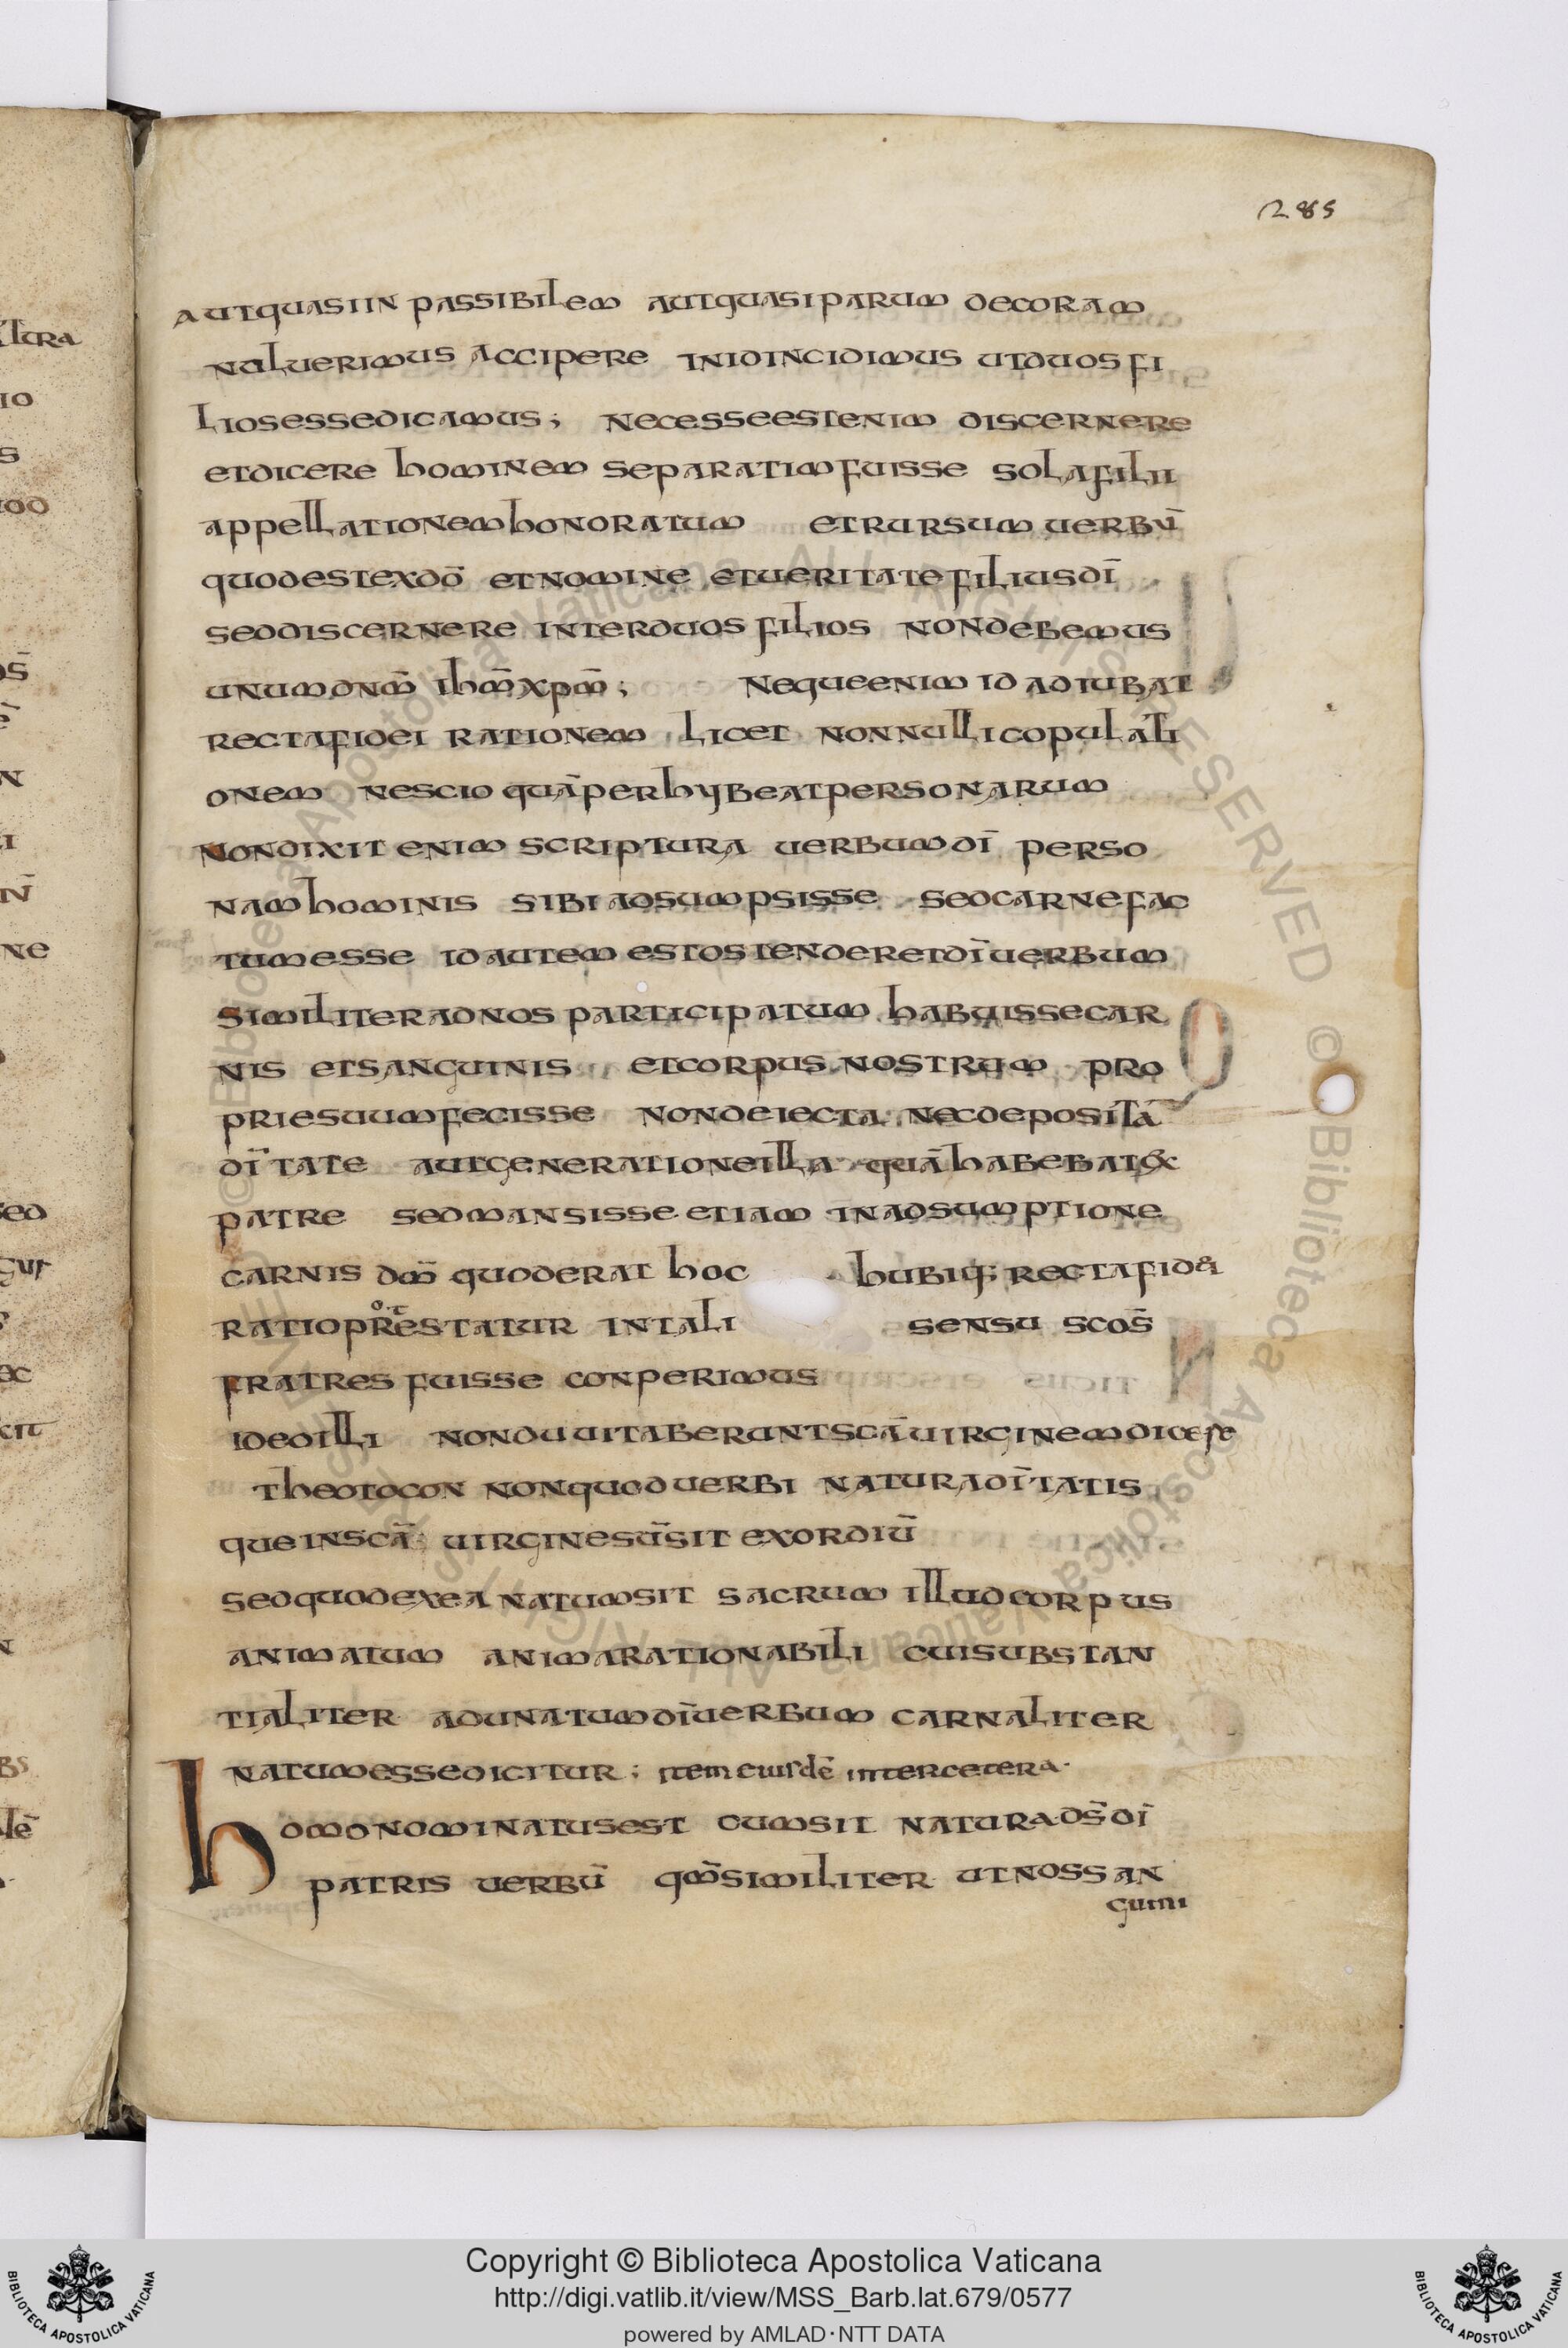 285
autquasiin passibilem autquasiparum decoram
noluerimus accipere inidincidimus utduosfi
liosessedicamus; necesseestenim discernere
etdicere hominem separatimfuisse solafilii
appellationemhonoratum etrursumuerbū
quodestexdō etnomine etueritatefiliusdī
seddiscernere interduosfilios nondebemus
unumdnm̄ ihm̄xpm̄; nequeenim idadiubat
rectafidei rationem licet nonnullicopulati
onem nescioquāperhybeatpersonarum
nondixit enim scriptura uerbumdī perso
namhominis sibiadsumpsisse sedcarnefac
tumesse idautemestostenderetdīuerbum
similiteradnosparticipatum habuissecar
nis etsanguinis etcorpusnostrum pro
priesuumfecisse nondeiecta necdepositā
dītate autgenerationeilla quāhabebatex
patre sedmansisseetiam inadsumptione
carnis dm̄ quoderat hoc hubiq; rectafidei
ratioprotestatur intali sensu scōs
fratresfuisse conperimus
ideoilli nonduuitaberuntscāuirginemdicere
theotocon nonquoduerbi naturadītatis
queinscā uirginesūsit exordiū
sedquodexea natumsit sacrum illudcorpus
animatum animarationabili cuisubstan
tialiter adunatumdīuerbum carnaliter
natumessedicitur; item eiusdē intercetera·
homonominatusest cumsit naturadsdī
patris uerbū qm̄similiter utnossan
guini
Copyright © Biblioteca Apostolica Vaticana
http://digi.vatlib.it/view/MSS_Barb.lat.679/0577
powered by AMLAD·NTT DATA